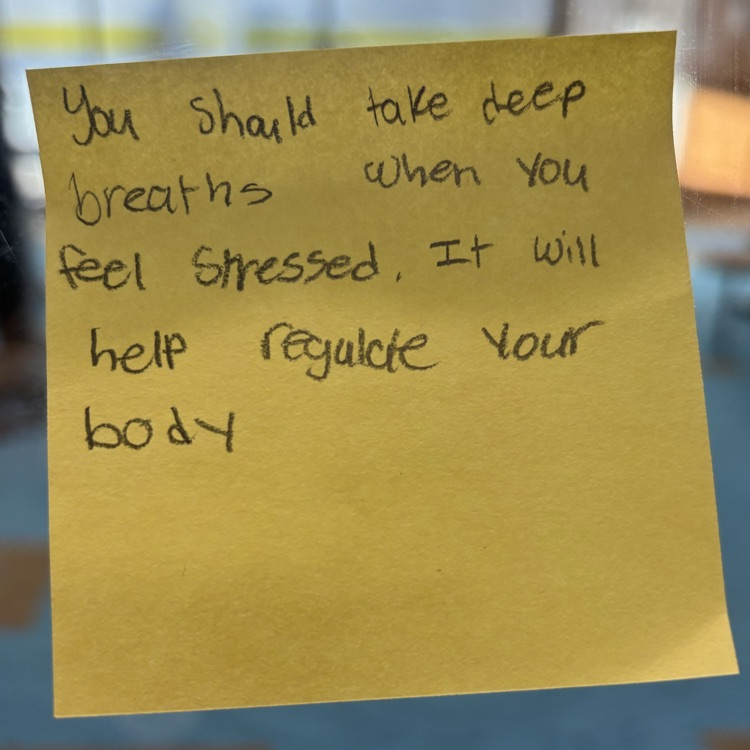 You should take deep
breaths when you
feel stressed. It will
help regulate your
body